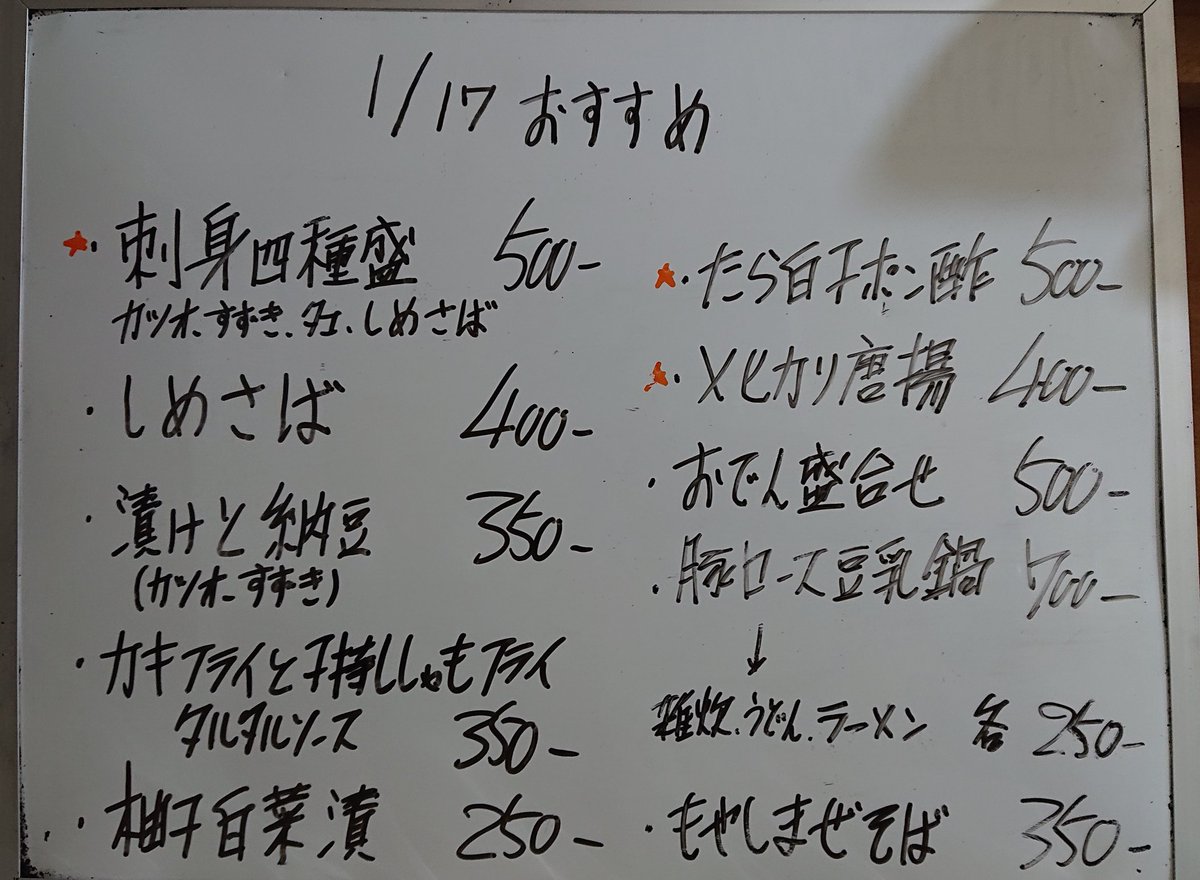 1/17 おすすめ
・刺身四種盛 500-
カツオ、すずき、タコ、しめさば
・しめさば 400-
・漬けと納豆 350-
(カツオ、すずき)
・カキフライと子持ししゃもフライ
タルタルソース 350-
・柚子白菜漬 250-
・たら白子ポン酢 500-
・メヒカリ唐揚 400-
・おでん盛合せ 500-
・豚ロース豆乳鍋 700-
↓
雑炊、うどん、ラーメン 各 250-
・もやしまぜそば 350-